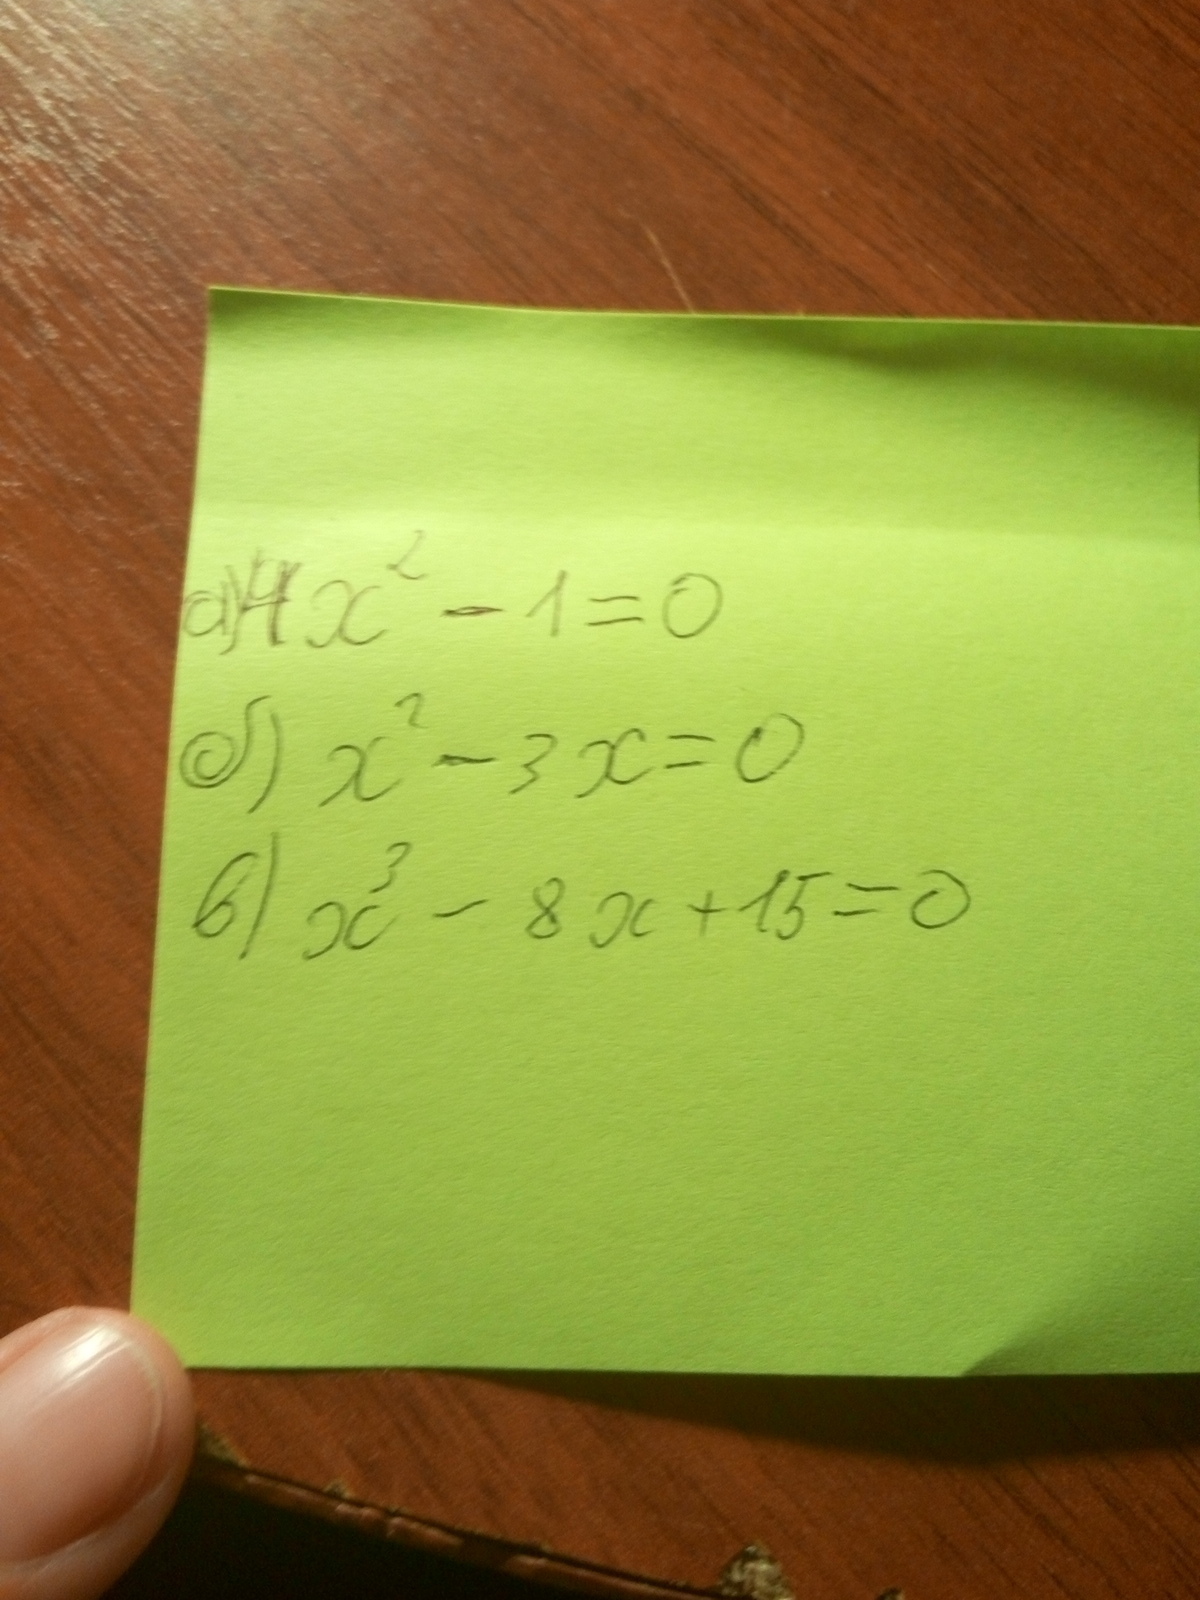 а) 4x² - 1 = 0
б) x² - 3x = 0
в) x³ - 8x + 15 = 0